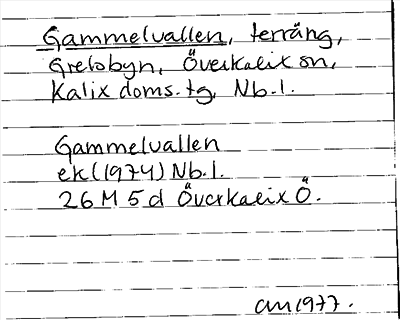 Gammelvallen, terräng,
Grelsbyn, Överkalix sn,
Kalix doms.tg, Nb.l.
Gammelvallen
ek (1974) Nb.l.
26 M 5 d Överkalix Ö.
1977.